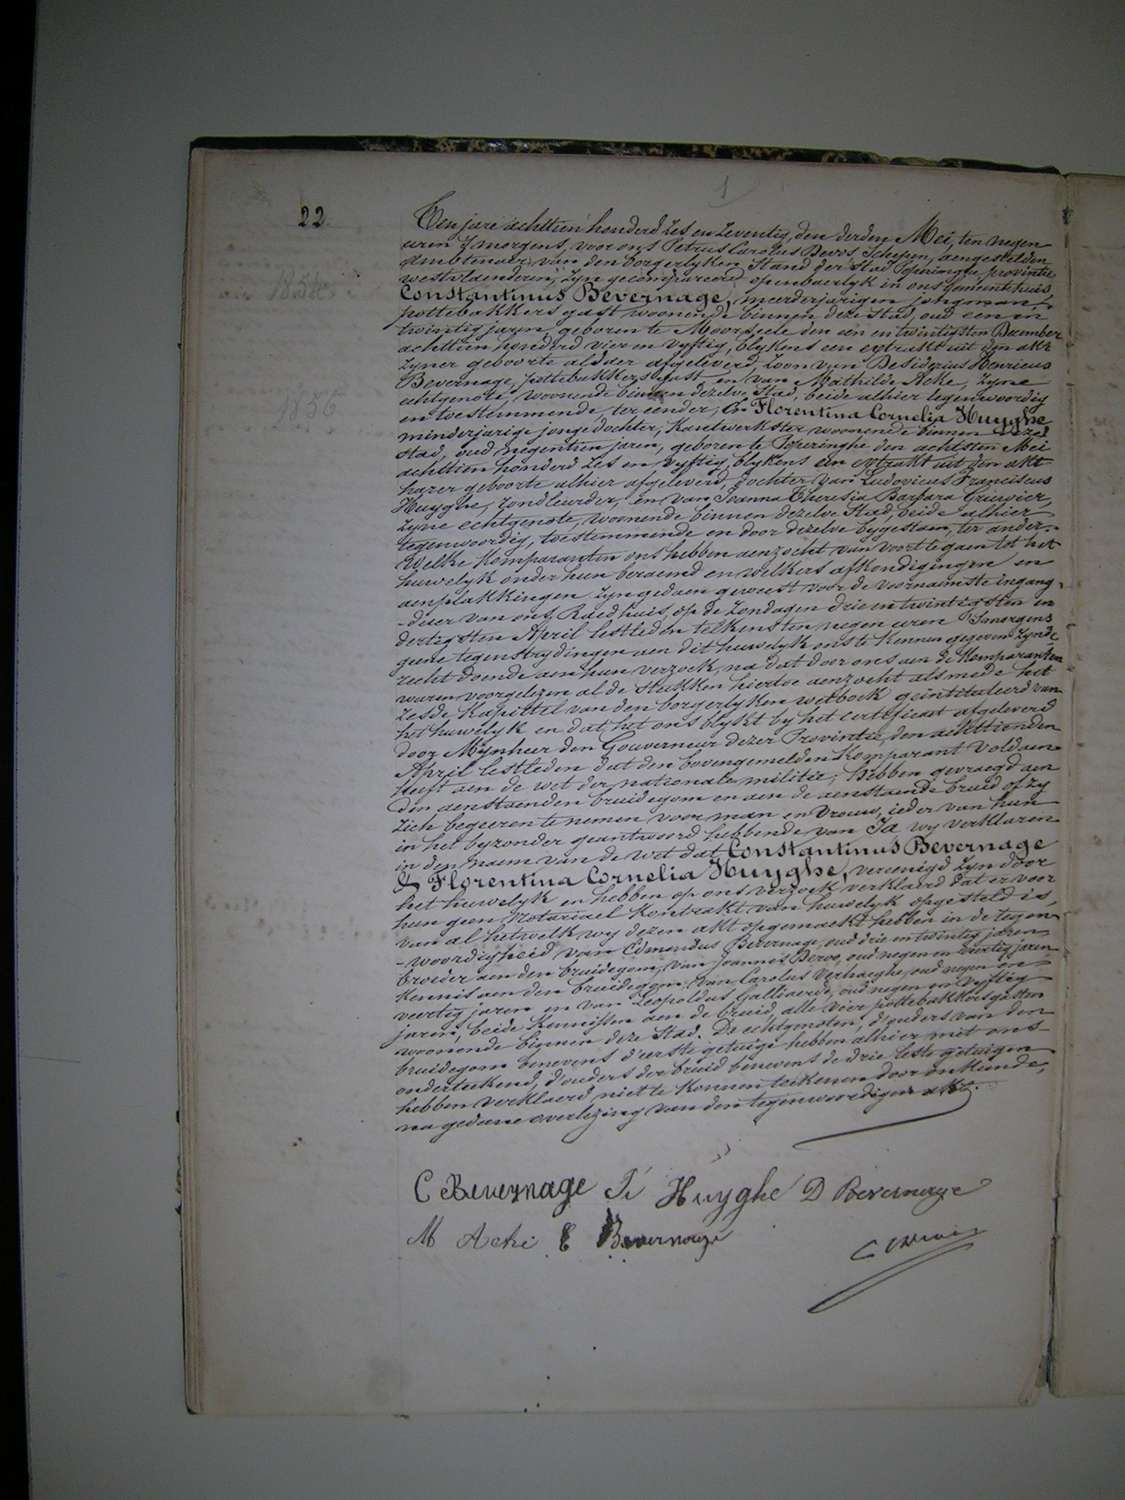 22.
Ten jare achttien honderd zes en zeventig, den derden Mei, ten negen
uren 's morgens, voor ons Petrus Carolus Schepen, aengestelden
Ambtenaer van den borgerlyken Stand der Stad Poperinghe, provintie
westvlaenderen, zyn gecompareerd openbaerlyk in ons gemeentehuis
Constantinus Bevernage, meerderjarigen jongman,
pottebakkersgast woonende binnen deze Stad, oud een en
twintig jaren, geboren te Moorseele den een en twintigsten December
achttien honderd vier en vyftig, blykens een extrakt uit den akt
zyner geboorte aldaer afgeleverd, zoon van Desiderius Henricus
Bevernage, pottebakkersgast en van Mathilde Ache, zyne
echtgenote, woonende binnen dezelve Stad, beide alhier tegenwoordig
en toestemmende, ter eender; En Florentina Cornelia Huyghe
minderjarige jonge dochter, kantwerkster woonende binnen deze
stad, oud negentien jaren, geboren te Poperinghe den achtsten Mei
achttien honderd zes en vyftig, blykens een extrakt uit den akt
harer geboorte alhier afgeleverd, dochter van Ludovicus Franciscus
Huyghe, zandleurder, en van Joanna Theresia Barbara Gruwier,
zyne echtgenote, woonende binnen dezelve Stad, beide alhier
tegenwoordig, toestemmende en door dezelve bygestaen, ter ander.
Welke Komparanten ons hebben aenzocht van voort te gaen tot het
huwelyk onder hun beraemd en welkers afkondigingen en
aenplakkingen zyn gedaen geweest voor de voornaemste ingang-
-deur van ons Raedhuis, op de Zondagen drie en twintigsten en
dertigsten April lestleden telkens ten negen uren 's morgens
geene tegenstrydingen aen dit huwelyk ons te kennen gegeven zynde
recht doende aen hun verzoek, na dat door ons aen de Komparanten
waren voorgelezen al de stukken hiertoe aenzocht als mede het
zesde Kapittel van den borgerlyken wetboek geïntituleerd van
het huwelyk en dat het ons blykt by het certificaet afgeleverd
door Mynheer den Gouverneur dezer Provintie, den achttienden
April lestleden dat den bovengemelden Komparant voldaen
heeft aen de wet der nationale militie; hebben gevraegd aen
den aenstaenden bruidegom en aen de aenstaende bruid of zy
zich begeeren te nemen voor man en vrouw, ieder van hun
in het byzonder geantwoord hebbende van Ja wy verklaren
in den naem van de wet dat Constantinus Bevernage
& Florentina Cornelia Huyghe, vereenigd zyn door
het huwelyk en hebben op ons verzoek verklaerd dat er voor
hun geen Notarieel Kontrakt van huwelyk opgesteld is,
van al hetwelk wy dezen akt opgemaekt hebben in de tegen-
-woordigheid van Edmondus Bevernage, oud drie en twintig jaren
broeder aen den bruidegom, van Joannes oud negen en veertig jaren
kennis aen den bruidegom, van Carolus Verhaeghe, oud negen en
veertig jaren en van Leopoldus Galliaerde, oud negen en vyftig
jaren, beide kennissen aen de bruid, alle vier pottebakkersgasten
woonende binnen deze Stad. De echtgenoten, d'ouders van den
bruidegom benevens d'eerste getuige hebben alhier met ons
onderteekend, d'ouders der bruid benevens de drie leste getuigen
hebben verklaerd niet te konnen teekenen door onkunde,
na gedaene overlezing van den tegenwoordigen akt.
C Bevernage Huyghe D Bevernage
M Ache E Bevernage